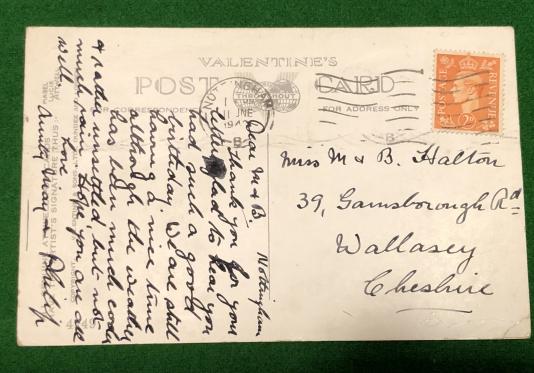 VALENTINE'S
POST CARD
FOR CORRESPONDENCE
FOR ADDRESS ONLY
NOTTINGHAM
JNE
POSTAGE
REVENUE
2D
Nottingham
Dear M & B.
thank you for your
letter, glad to hear you
had such a good
birthday. We are still
having a nice time
although the weather
has been much cooler
& rather unsettled, but not
much rain. Hope you are all
well. Love
Aunty May & Philip
Miss M & B. Halton
39, Gainsborough Rd
Wallasey
Cheshire